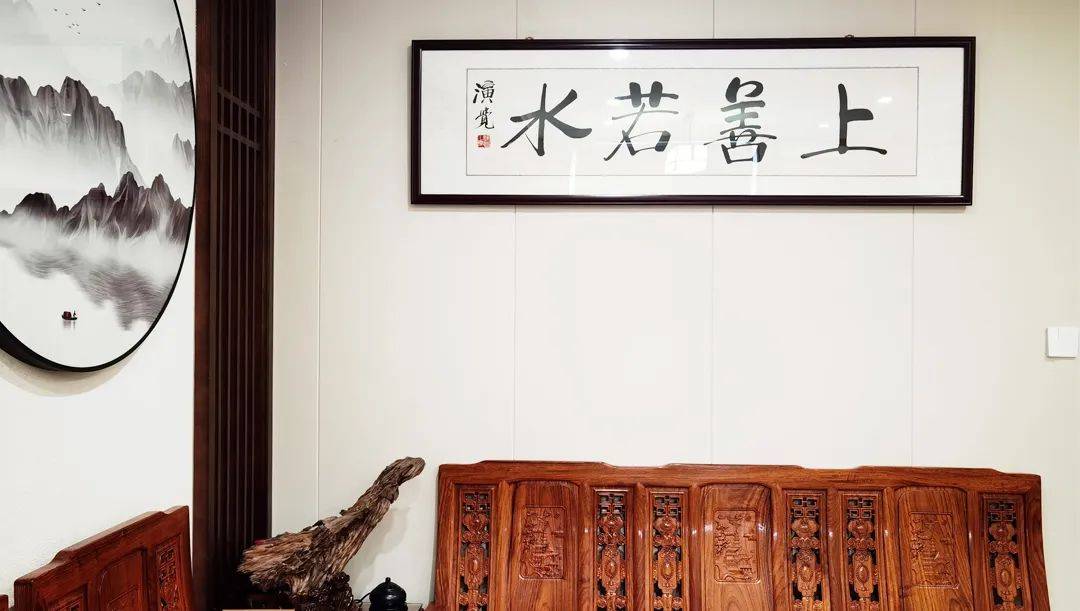 上善若水
演覺